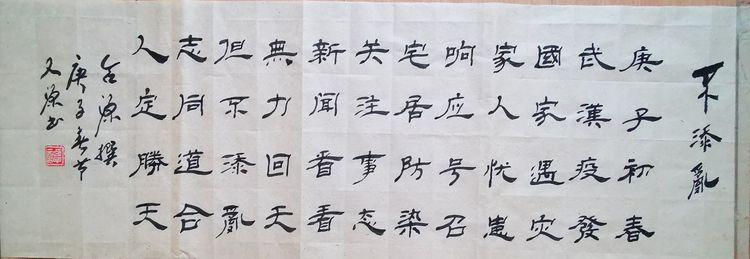 不添亂
庚子初春
武漢疫發
國家遇灾
家人忧患
响应号召
宅居防染
关注事态
新聞看看
無力回天
但不添亂
志同道合
人定勝天
源撰
庚子春节
又源书